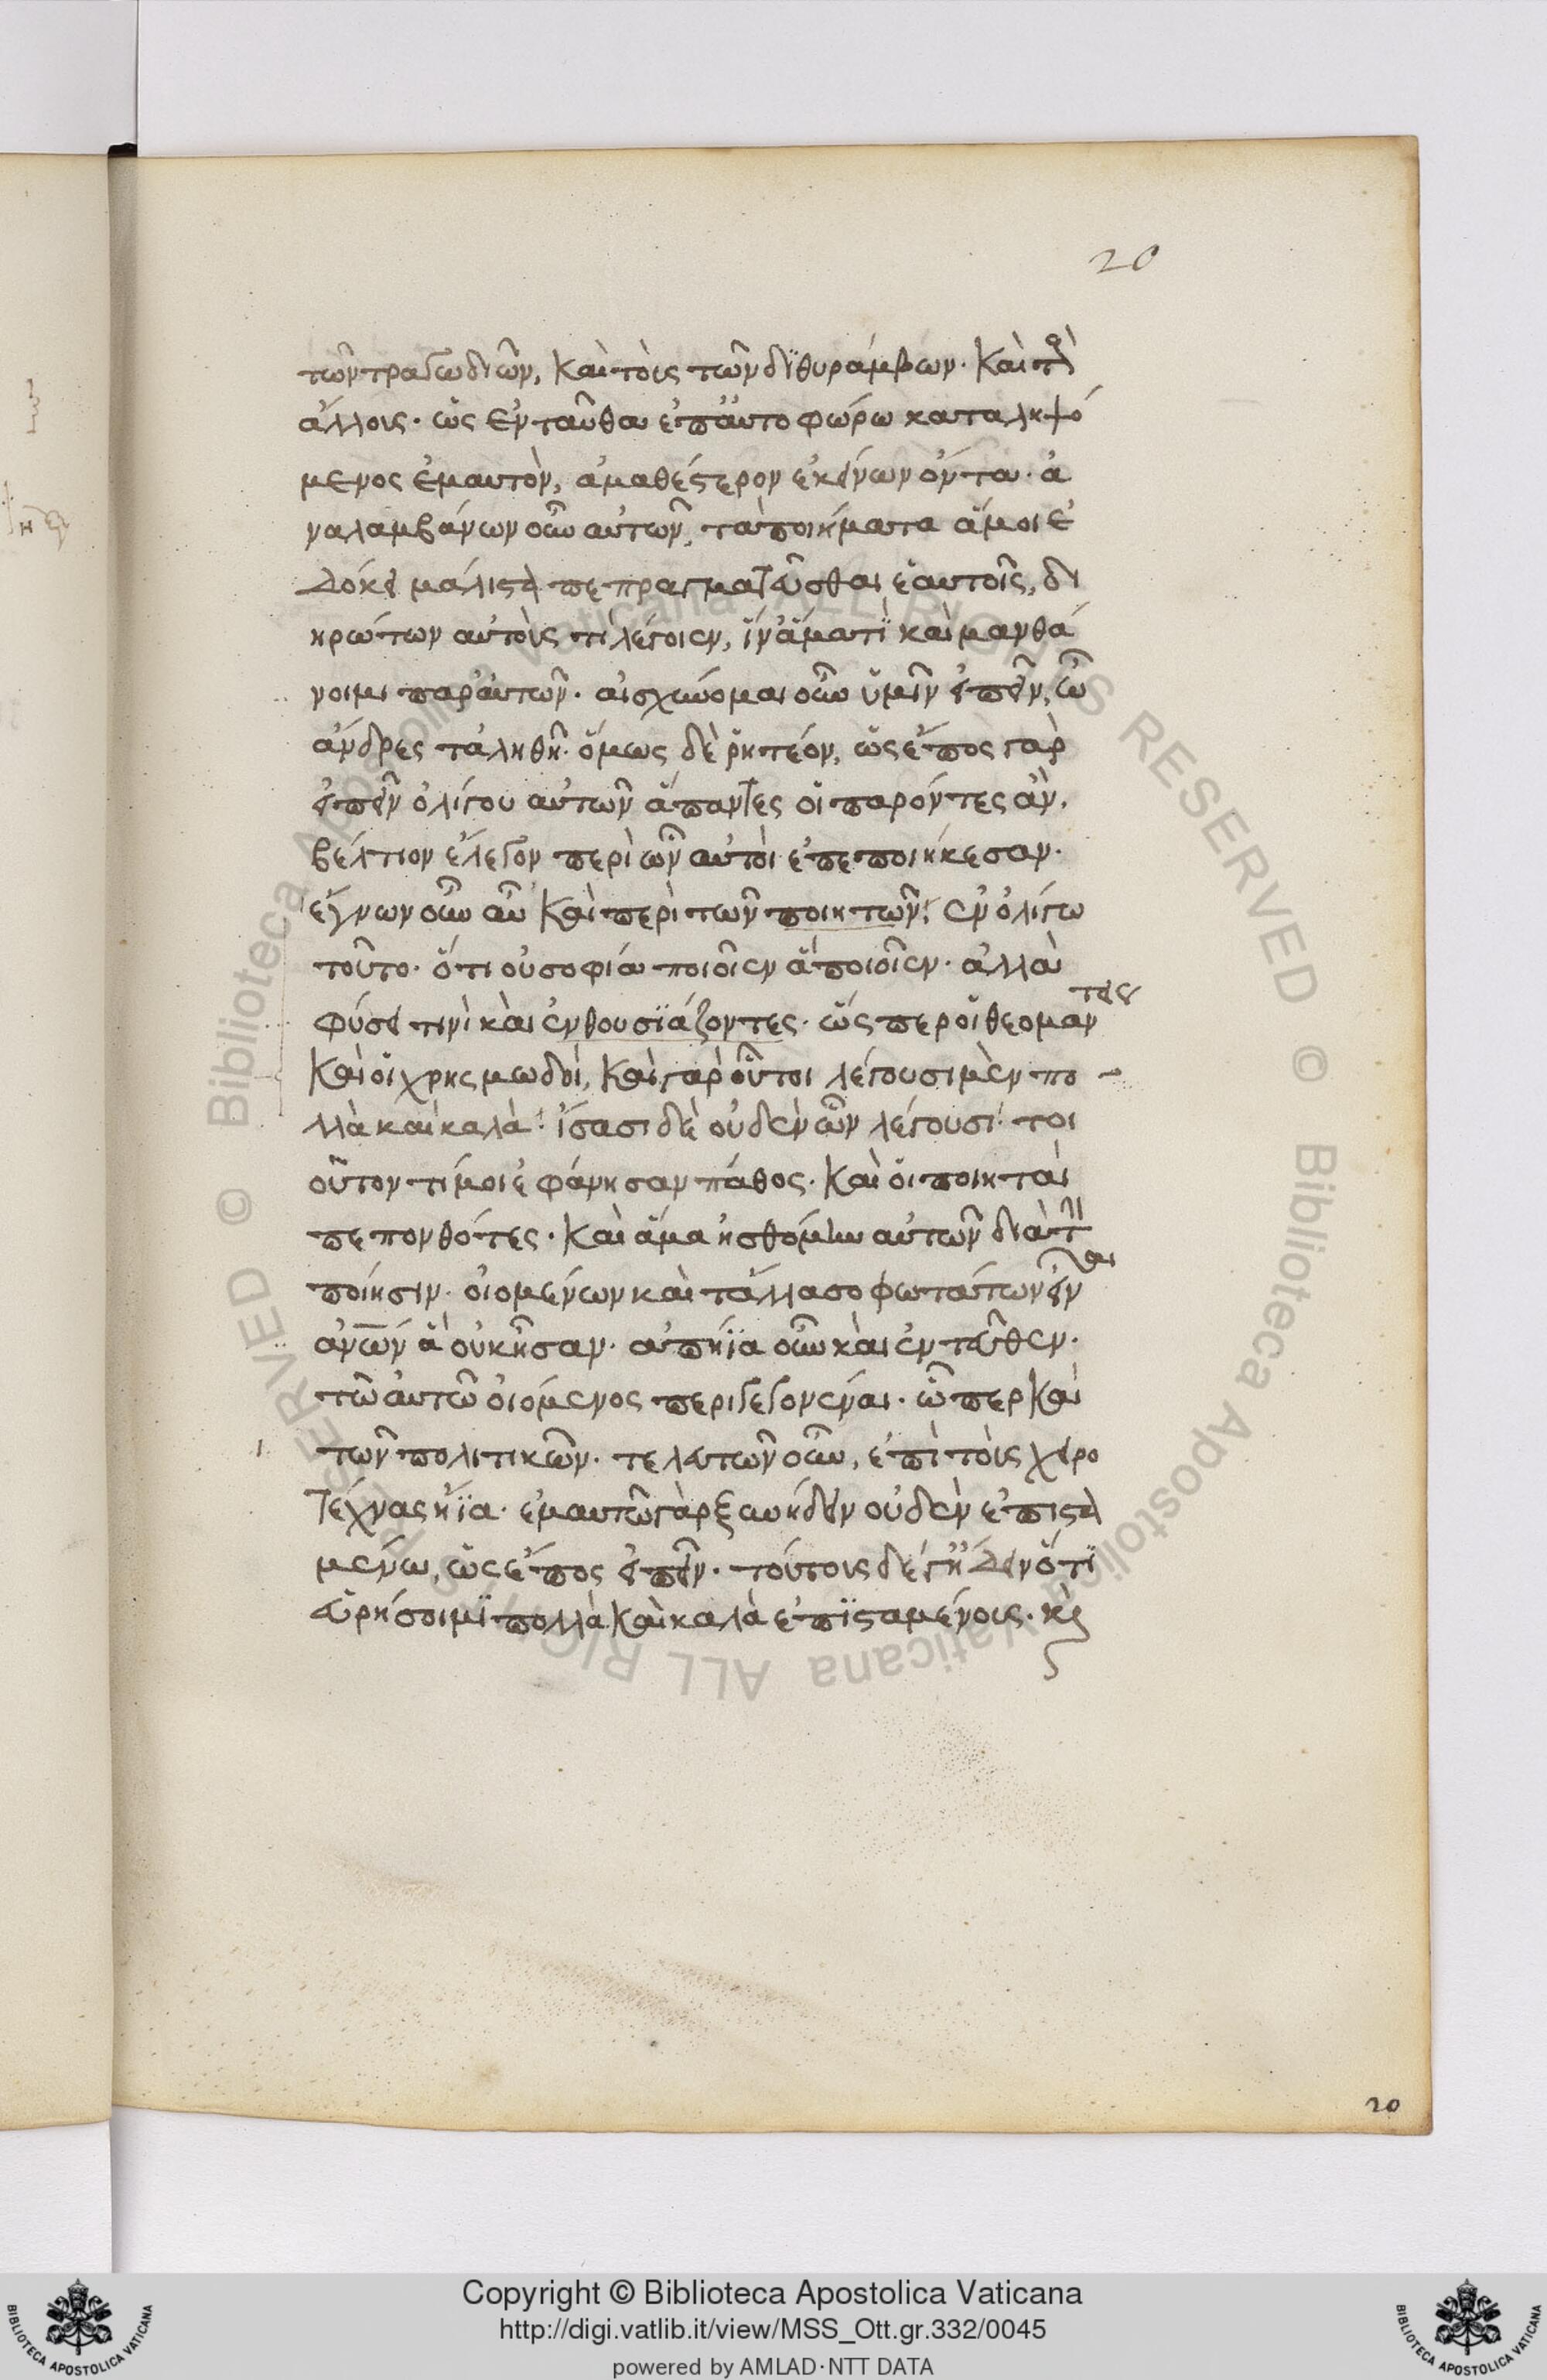 20
τῶν τραγωδιῶν, καὶ τοὺς τῶν διθυράμβων. καὶ τοὺς
ἄλλοις. ὡς ἐνταῦθα ἐπ' ἀυτοφώρω καταληψό
μενος ἐμαυτὸν, ἀμαθέστερον ἐκείνων ὄντα. ἀ
ναλαμβάνων οὖν αὐτῶν, τὰ ποιήματα ἅ μοι ἐ
δόκει μάλιστα πεπραγματεῦσθαι ἑαυτοῖς, δι
ηρώτων αὐτοὺς τί λέγοιεν, ἵν' ἅμα τὶ καὶ μανθά
νοιμι παρ' ἀυτῶν. αἰσχύνομαι οὖν ὑμῖν εἰπεῖν, ὦ
ἄνδρες τἀληθῆ. ὅμως δὲ ῥητέον, ὡς ἔπος γὰρ
εἰπεῖν ὀλίγου αὐτῶν ἅπαντες οἱ παρόντες ἂν,
βέλτιον ἔλεγον περὶ ὧν αὐτοὶ ἐπεποιήκεσαν.
ἔγνων οὖν αὖ καὶ περὶ τῶν ποιητῶν, ἐν ὀλίγω
τοῦτο. ὅτι οὐ σοφία ποιοῖεν ἃ ποιοῖεν. ἀλλὰ
φύσει τινὶ καὶ ἐνθουσιάζοντες. ὥσπερ οἱ θεομάν
τεις
καὶ οἱ χρησμωδοὶ, καὶ γὰρ οὗτοι λέγουσι μὲν πο
λλὰ καὶ καλὰ. ἴσασι δὲ οὐδὲν ὧν λέγουσι. τοι
οῦτον τί μοι ἐφάνησαν πάθος. καὶ οἱ ποιηταὶ
πεπονθότες. καὶ ἅμα ἠσθόμην αὐτῶν διὰ τὴν
ποίησιν. οἰομένων καὶ τἄλλα σοφωτάτων εἶν
αι
ἀνων ἃ οὐκ ἦσαν. ἀπῆϊα οὖν καὶ ἐντεῦθεν.
τῶ ἀυτῶ οἰόμενος περιγεγονέναι. ὧπερ καὶ
τῶν πολιτικῶν. τελευτῶν οὖν, ἐπὶ τοὺς χειρο
τέχνας ἦϊα. ἐμαυτῶ γὰρ ξυνήδειν οὐδὲν ἐπιστα
μένω, ὡς ἔπος εἰπεῖν. τούτους δέ γ' ἤδειν ὅτι
εὑρήσοιμι πολλὰ καὶ καλὰ ἐπισταμένους. καὶ
20
Copyright © Biblioteca Apostolica Vaticana
http://digi.vatlib.it/view/MSS_Ott.gr.332/0045
powered by AMLAD·NTT DATA